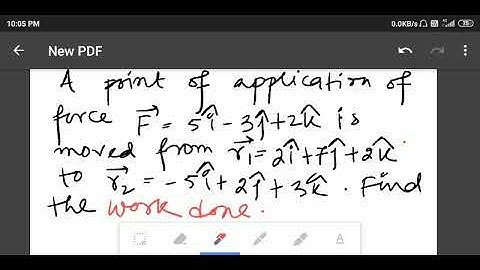 10:05 PM
0.0KB/s
New PDF
A point of application of
force F⃗ = 5î - 3ĵ + 2k̂ is
moved from r⃗₁ = 2î + 7ĵ + 2k̂
to r⃗₂ = -5î + 2ĵ + 3k̂. Find
the work done.
A